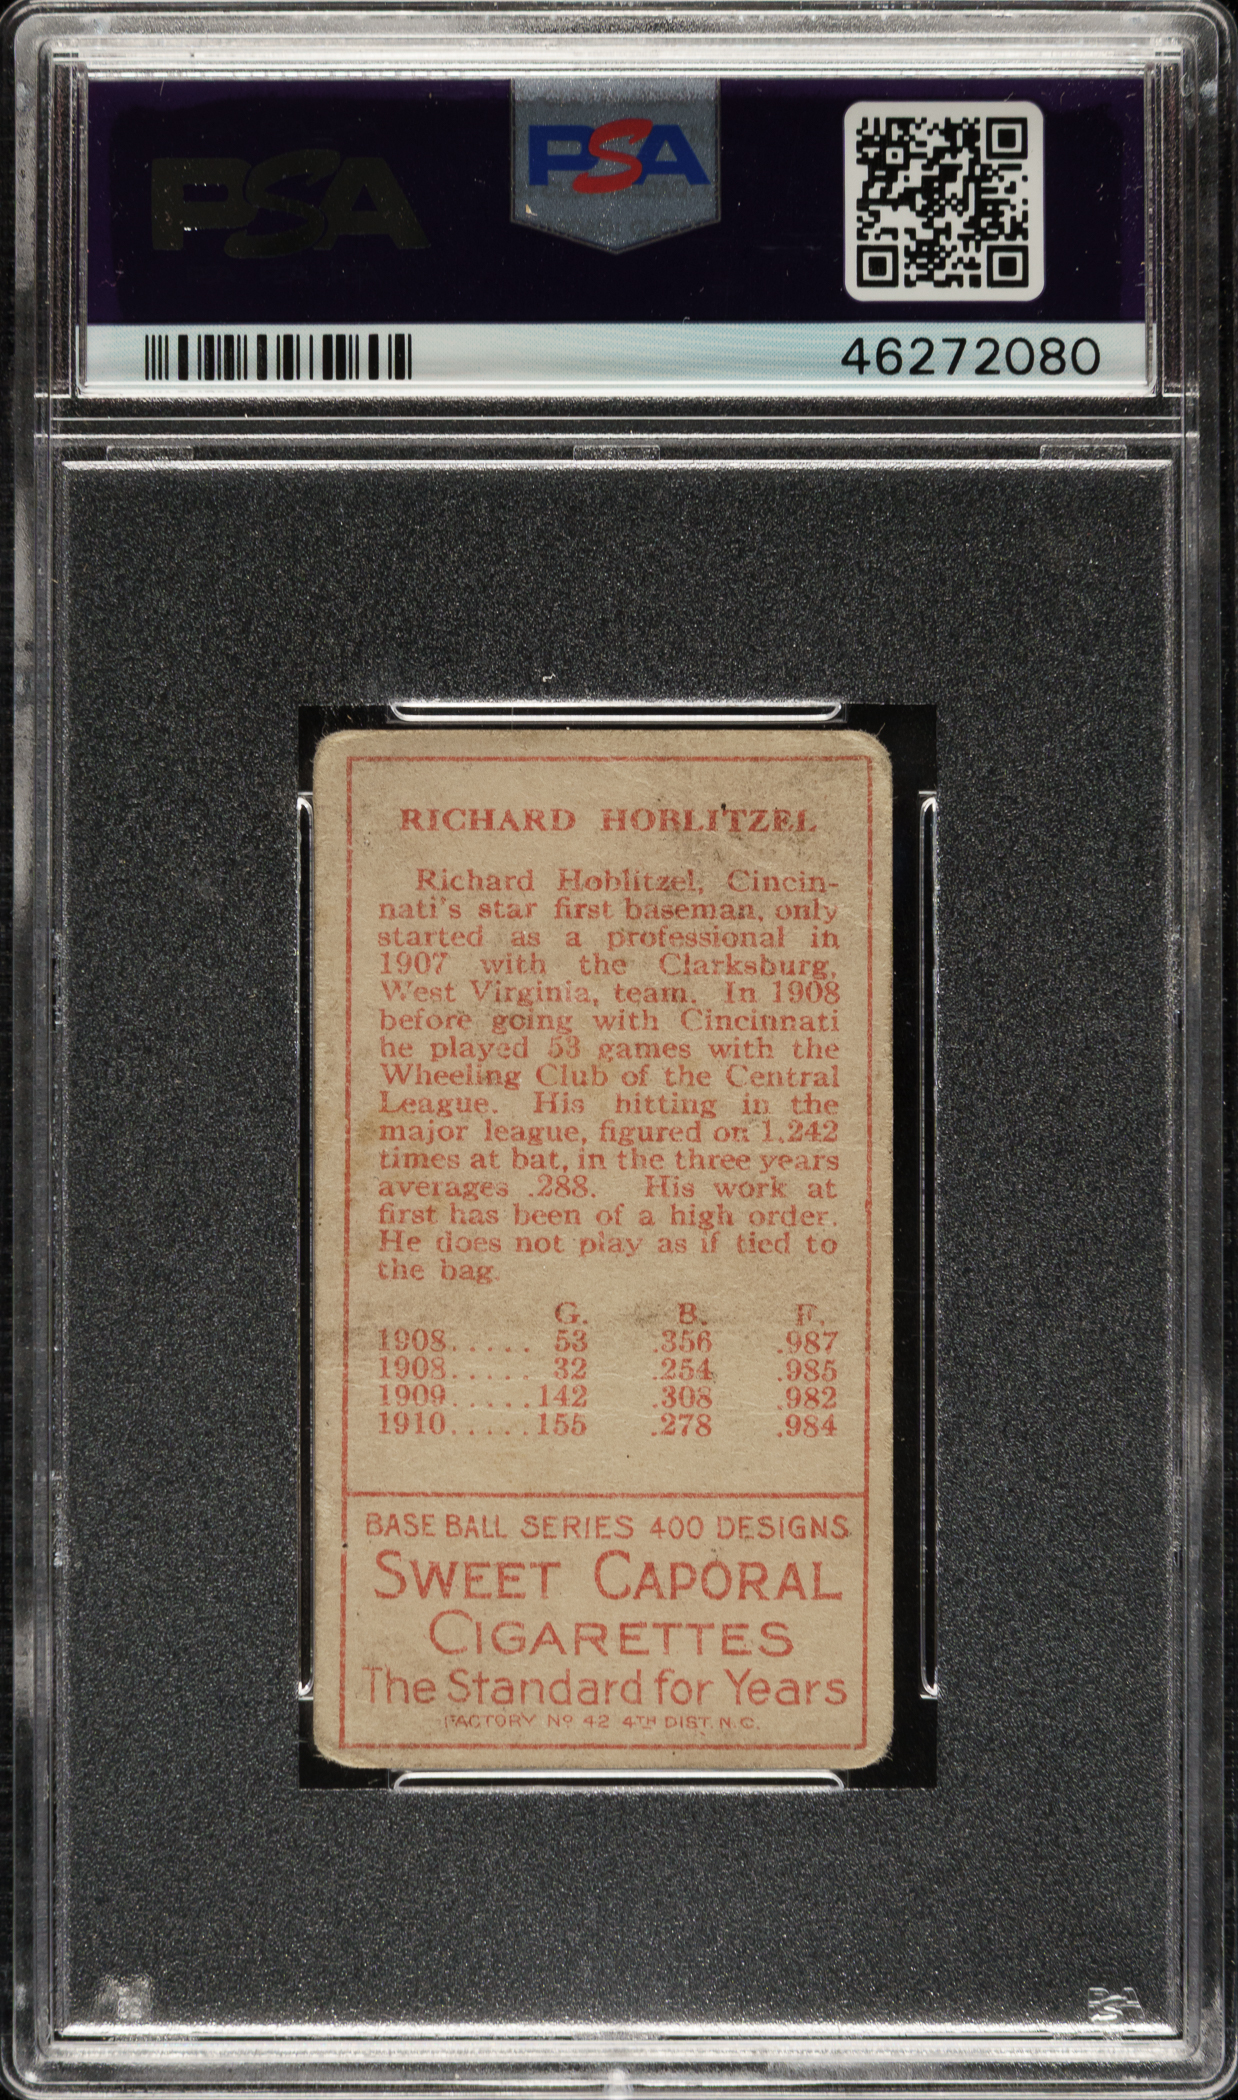 PSA
PSA
46272080
RICHARD HOBLITZEL
Richard Hoblitzel, Cincin-
nati's star first baseman, only
started as a professional in
1907 with the Clarksburg,
West Virginia, team. In 1908
before going with Cincinnati
he played 53 games with the
Wheeling Club of the Central
League. His hitting in the
major league, figured on 1,242
times at bat, in the three years
averages .288. His work at
first has been of a high order.
He does not play as if tied to
the bag.
G. B. F.
1908..... 53 .356 .987
1908..... 32 .254 .985
1909.....142 .308 .982
1910.....155 .278 .984
BASE BALL SERIES 400 DESIGNS
SWEET CAPORAL
CIGARETTES
The Standard for Years
FACTORY Nº 42 4TH DIST. N.C.
PSA